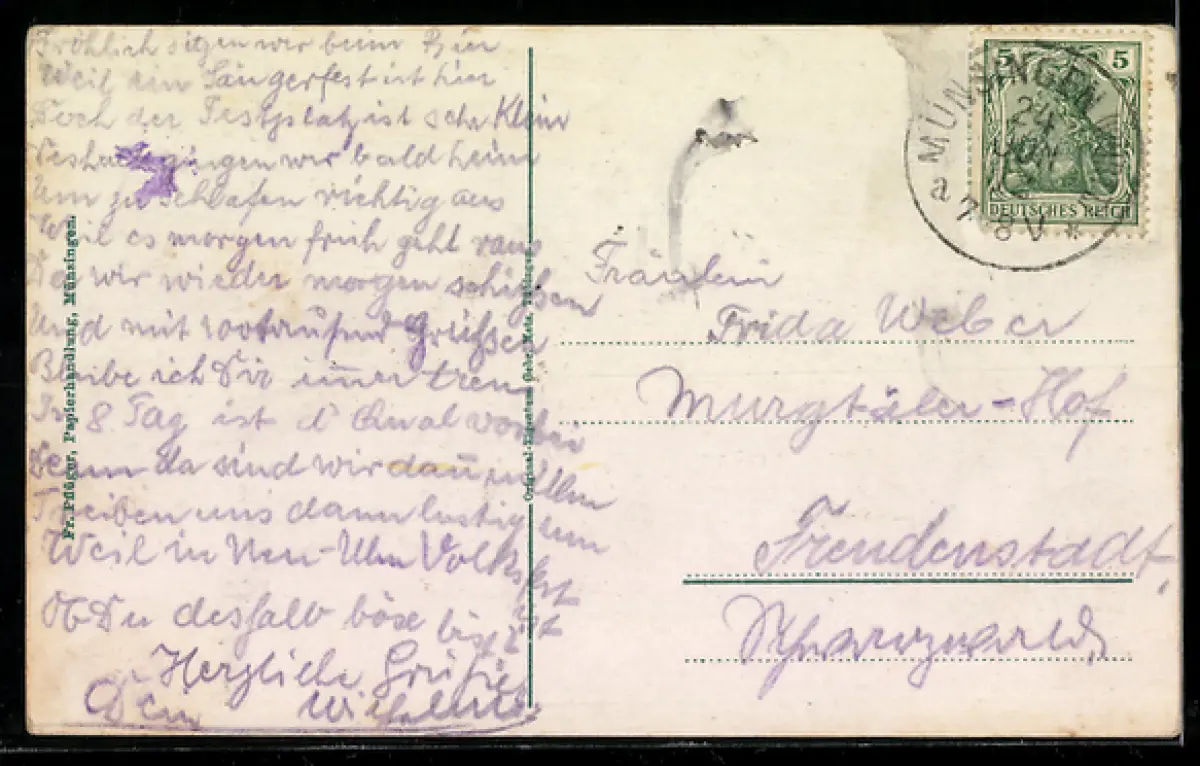 Fröhlich sitzen wir beim Bier
Weil ein Sängerfest ist hier
Doch der Festplatz ist sehr Klein
Deshalb gingen wir bald heim
Um zu Schlafen richtig aus
Weil es morgen früh geht raus
Da wir wieder morgen schießen
Und mit 1000tausend Grüßen
Bleibe ich Dir im̄er treu
In 8 Tag ist d' vorbei
Denn da sind wir dan̄ in Ulm
Treiben uns dann lustig um
Weil in Neu-Ulm Volksfest ist
Ob Du deshalb böse bist?
Herzliche Grüße
Dein Wilhelm
Fr. Pflüger, Papierhandlung, Münsingen.
Original-Eigentum Gebr. Metz, Tübingen.
MÜNSINGEN
24 JUN
a 7-8 V *
5 5
DEUTSCHES REICH
Fräulein
Frida Weber
Murgtäler-Hof
Freudenstadt,
Schwarzwald